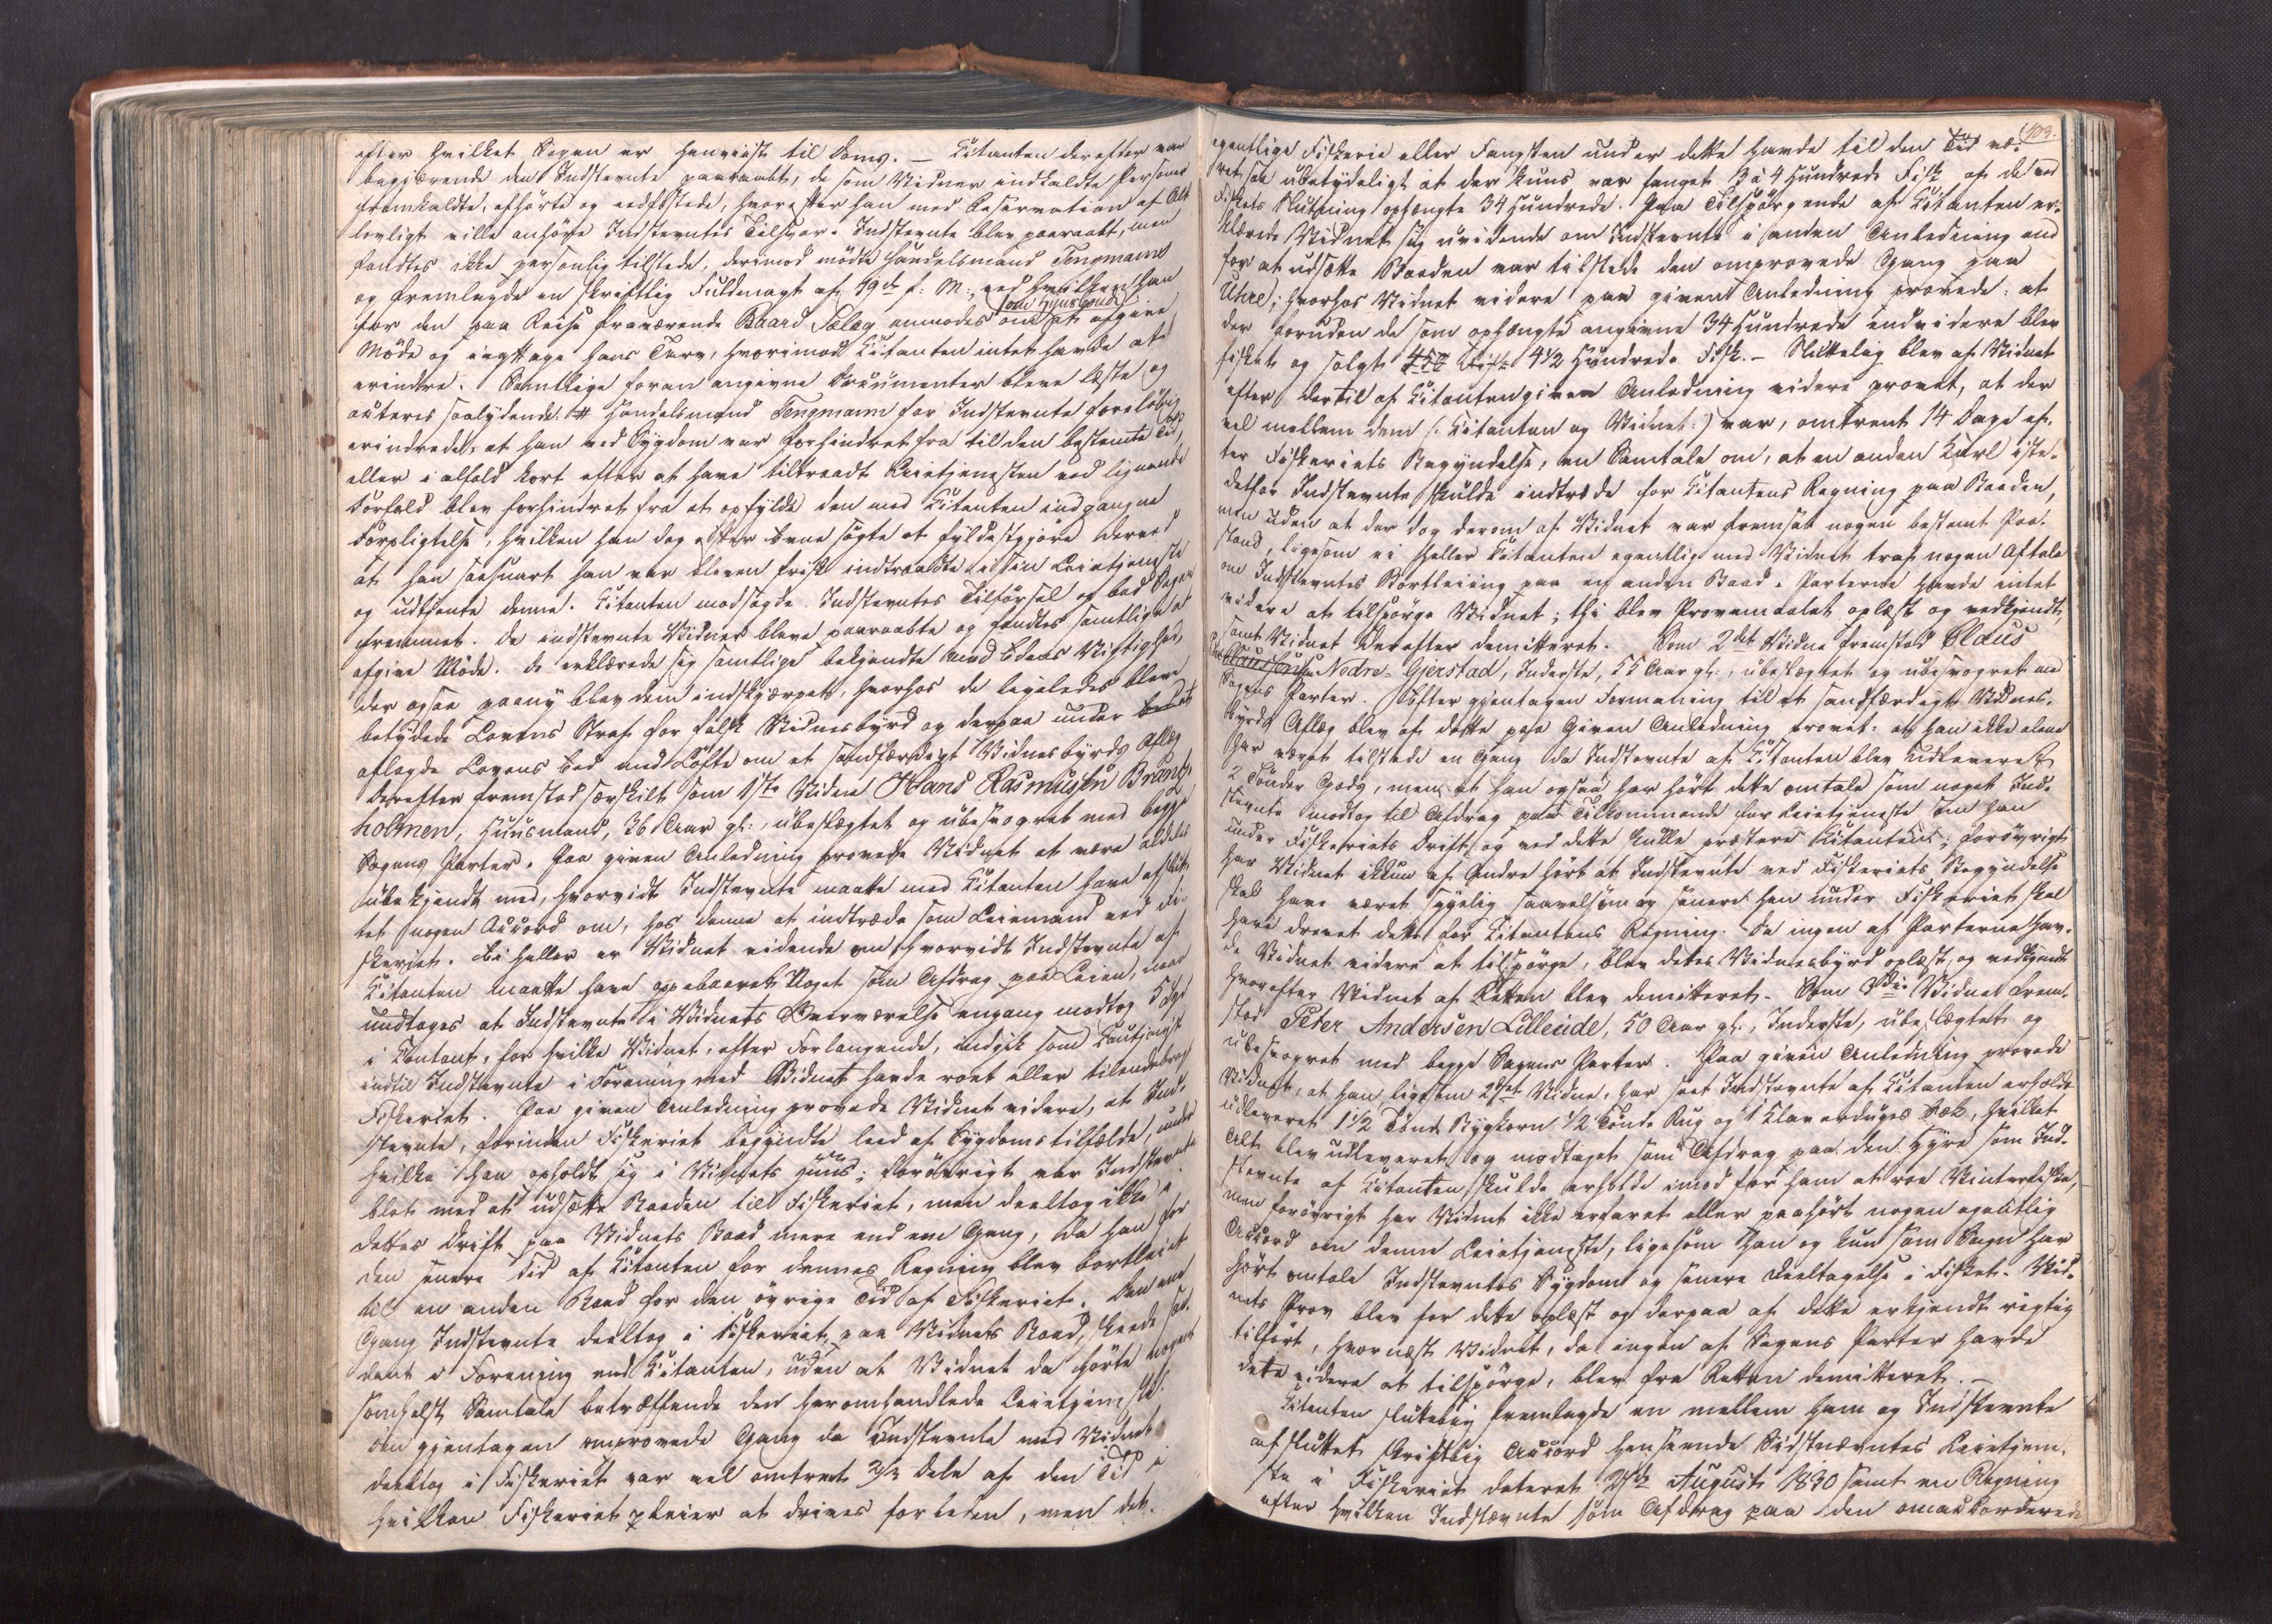 efter hvilket Sagen er henviist til Doms. – Citanten derefter var
begjærende den Indstevnte paaraabt, de som Vidner indkaldte Personer
fremkaldte, afhørte og eedfæstede, hvorefter han med Reservation af Alt
lovligt ville anhøre Indstevntes Tilsvar. Indstevnte blev paaraabt, men
fandtes ikke personlig tilstede, derimod mødte Handelsmand Tengmann
og fremlagde en skriftlig Fuldmagt af 19de f: M:, ved hvilken han
for den paa Reise fraværende Baard Sælæg anmodes om som Huusbond at afgive
Møde og iagttage hans Tarv, hvorimod Citanten intet havde at
erindre. Samtlige foran angivne Documenter bleve læste og
acteres saalydende: # Handelsmand Tengmann for Indstevnte foreløbig
erindrede, at han ved Sygdom var forhindret fra til den bestemte Tid,
eller i alfald kort efter at have tiltraadt Leietjenesten ved lignende
Forfald blev forhindret fra at opfylde den med Citanten indgangne
Forpligtelse, hvilken han dog efter Evne søgte at fyldestgjøre derved
at han saasnart han var bleven frisk indtraadte i sin Leietjeneste
og udtjente denne. Citanten modsagde Indstevntes Tilførsel og bad Sagen
fremmet. De indstevnte Vidner bleve paaraabte og fandtes samtlige at
afgive Møde. De erklærede sig samtlige bekjendte med Edens Vigtighed,
der ogsaa paany blev dem indskjærpet, hvorhos de ligeledes blev
betydede Lovens Straf for falsk Vidnesbyrd og derpaa under
aflagde Lovens Eed med Løfte om et sandfærdigt Vidnesbyrds Aflæg
Derefter fremstod særskilt som 1ste Vidne Hans Rasmussen Brands-
holmen, Huusmand, 36 Aar gl:, ubeslægtet og ubesvogret med begge
Sagens Parter. Paa given Anledning provede Vidnet at være aldeles
ubekjendt med, hvorvidt Indstevnte maatte med Citanten have afslut-
tet nogen Accord om, hos denne at indtræde som Leiemand ved Fi-
skeriet. Ei heller er Vidnet vidende om hvorvidt Indstevnte af
Citanten maatte have oppebaaret Noget som Afdrag paa Leien, med
undtages at Indstevnte i Vidnets Overværelse engang modtog 5 Spd
i Contant, for hvilke Vidnet, efter Forlangende, indgik som Cautionist
indtil Indstevnte i Forening med Vidnet havde roet eller tilendebragt
Fiskeriet. Paa given Anledning provede Vidnet videre, at Ind-
stevnte, forinden Fiskeriet begyndte leed af Sygdomstilfælde, under
hvilke han opholdt sig i Vidnets Huus; forøvrigt var Indstevnte
blot med at udsætte Baaden til Fiskeriet, men deeltog ikke i
dettes Drift paa Vidnets Baad mere end een Gang, da han for
den senere Tid af Citanten for dennes Regning blev bortleiet
til en anden Baad for den øvrige Tid af Fiskeriet. Den ene
Gang Indstevnte deeltog i Fiskeriet paa Vidnets Baad, skeede saa-
dant i Forening med Citanten, uden at Vidnet da hørte nogen
somhelst Samtale betræffende den heromhandlede Leietjeneste.
Den gjentagen omprovede Gang da Indstevnte med Vidnet
deeltog i Fiskeriet var vel omtrent 2/3 Dele af den Tid i
hvilken Fiskeriet pleier at drives forløben, men det
103.
egentlige Fiskerie eller Fangsten under dette havde til den Tid væ-
ret saa ubetydeligt at der kuns var fanget 3 à 4 Hundrede Fisk af de ved
Fiskets Slutning ophængte 34 Hundrede. Paa Tilspørgende af Citanten er-
klærede Vidnet sig uvidende om Indstevnte i anden Anledning end
for at udsætte Baaden var tilstede den omprovede Gang paa
Uhre; hvorhos Vidnet videre paa given Anledning provede: at
der foruden de som ophængte angivne 34 Hundrede endvidere blev
fisket og solgt 4 1/2 Hundrede Fisk. – Sluttelig blev af Vidnet
efter dertil af Citanten given Anledning videre provet, at der
vel mellem dem (: Citanten og Vidnet :) var, omtrent 14 Dage ef-
ter Fiskeriets Begyndelse, en Samtale om, at en anden Karl iste-
detfor Indstevnte skulde indtræde for Citantens Regning paa Baaden,
men uden at der dog derom af Vidnet var fremsat nogen bestemt Paa-
stand, ligesom ei heller Citanten egentlig med Vidnet traf nogen Aftale
om Indstevntes Bortleiing paa en anden Baad. Parterne havde intet
videre at tilspørge Vidnet; thi blev Provemaalet oplæst og vedkjendt,
samt Vidnet derefter demitteret. Som 2det Vidne fremstod Claus
Nedre-Gjerstad, Inderste, 55 Aar gl:, ubeslægtet og ubesvogret med
Sagens Parter. Efter gjentagen Formaning til et sandfærdigt Vidnes-
byrds Aflæg blev af dette paa Given Anledning provet: at han ikke alene
har været tilstede en Gang da Indstevnte af Citanten blev udleveret
2 Tønder Gods, men at han ogsaa har hørt dette omtale som noget Ind-
stevnte modtog til Afdrag paa Tilkommende for Leietjeneste som han
under Fiskeriets Drift og ved dette skulle præstere Citanten; forøvrigt
har Vidnet ikkun af Andre hørt at Indstevnte ved Fiskeriets Begyndelse
skal have været sygelig saavelsom og senere hen under Fiskeriet skal
have drevet dette for Citantens Regning. Da ingen af Parterne hav-
de Vidnet videre at tilspørge, blev dets Vidnesbyrd oplæst, og vedkjendt
hvorefter Vidnet af Retten blev demitteret. Som 3die Vidne frem-
stod Peter Andersen Lilleeide, 50 Aar gl:, Inderste, ubeslægtet og
ubesvogret med begge Sagens Parter. Paa given Anledning provede
Vidnet, at han ligesom 2det Vidne, har seet Indstevnte af Citanten erholde
udleveret 1 1/2 Tønde Bygkorn 1/2 Tønde Rug og 1 Klaverduges Sæk, hvilket
Alt blev udleveret og modtaget som Afdrag paa den Hyre som Ind-
stevnte af Citanten skulde erholde imod for ham at roe Vinterfiske,
men forøvrigt har Vidnet ikke erfaret eller paahørt nogen egentlig
Accord om denne Leietjeneste, ligesom han og kun som Sagn har
hørt omtale Indstevntes Sygdom og senere Deeltagelse i Fisket. Vid-
nets Prov blev for dette oplæst og derpaa af dette erkjendt rigtig
tilført, hvornæst Vidnet, da ingen af Sagens Parter havde
dette videre at tilspørge, blev fra Retten demitteret. –
Citanten sluttelig fremlagde en mellem ham og Indstevnte
afsluttet skriftlig Accord henseende Sidstnævntes Leietjene-
ste i Fiskeriet dateret August 1830 samt en Regning
efter hvilken Indstævnte som Afdrag paa den omaccorderede